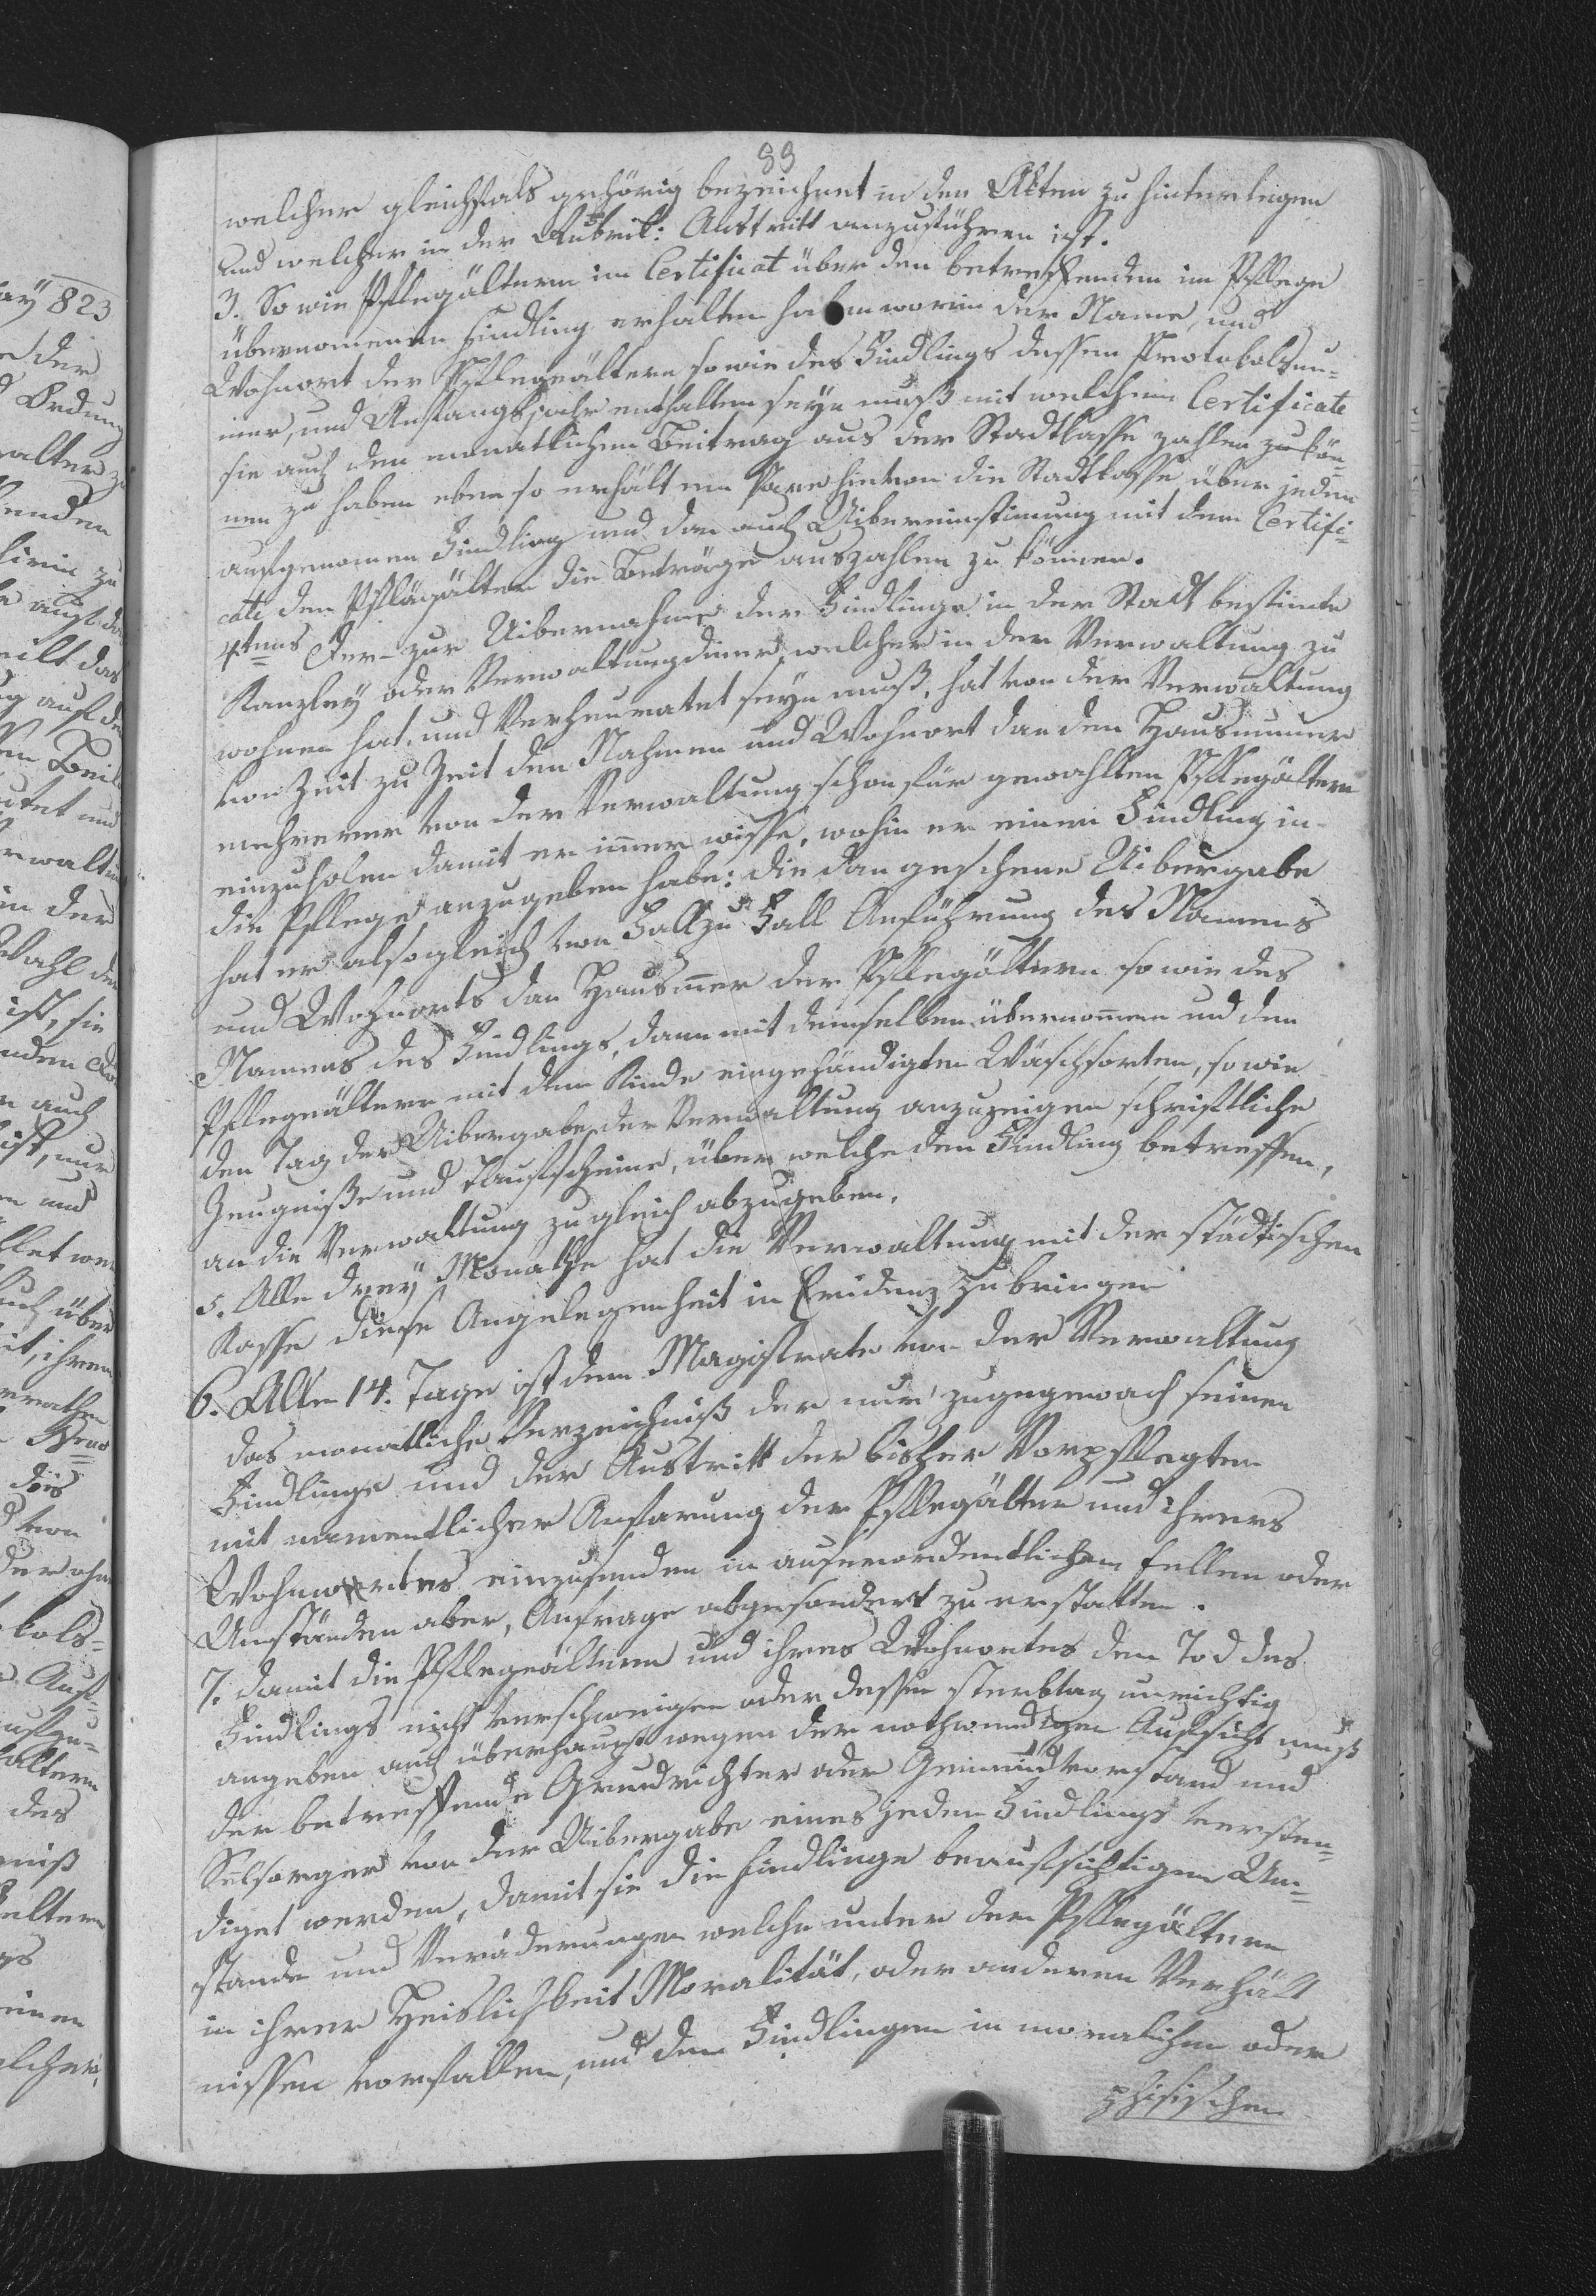 89
welcher gleichfals gehörig bezeichnet in den Akten zu hinterlegen
und welcher in der Rubrik: Austritt anzuführen ist.
3. So wie Pflegältern im Certificat über den betreffenden im Pflege
übernomenen Findling erhalten haben worin der Name, und
Wohnort der Pflegeältern so wie des Findlings dessen Protokolsnu=
mer, und Anfangsjahr enthalten seyn muß mit welchem Certificate
sie auch den monatlichen Beitrag aus der Stadtkasse zahlen zu kön=
nen zu haben eben so erhält ein Pare hievon die Stadtkasse über jeden
aufgenomen Findling und dan auch Uibereinstimung mit dem Certifi=
cate den Pflägältern die Beträge auszahlen zu können.
4tens Der zur Uibernahme der Findlinge in der Stadt bestimte
Kanzley oder Verwaltungdiener, welcher in der Verwaltung zu
wohnen hat, und Verheuratet seyn muß, hat von der Verwaltung
von Zeit zu Zeit den Nahmen und Wohnort dan den Hausnumer
mehrerer von der Verwaltung schon für gewählten Pflegältern
einzuholen damit er imer wisse, wohin er einen Findling in
die Pflege anzugeben habe: die dan geschene Uibergabe
hat er alsogleich von Fall zu Fall Anführung des Namens
und Wohnorts dan Hausmmer der Pflegältern so wie des
Namens des Findlings, dann mit demselben übernommen und den
Pflegeältern mit dem Kinde eingehändigten Wäschsorten, so wie
den Tag der Uibergabe der Verwaltung anzuzeigen schriftliche
Zeugniße und Taufscheine, über welche den Findling betreffen,
an die Verwaltung zugleich abzugeben.
5. Alle drey Monathe hat die Verwaltung mit der städtischen
Kasse diese Angelegenheit in Evidenz zu bringen
6. Alle 14. Tage ist dem Magistrate von der Verwaltung
das monatliche Verzeichniß der nur zugegewach seinen
Findlinge und der Austritt der bisher Vorpflegten
mit namentlicher Anfarung der Pflegälter und ihrers
Wohnwortes einzusenden in auserordentlichen fellen oder
Umständen aber, Anfrage abgesondert zu erstatten.
7. damit die Pflegeältern und ihres Wohnortes den Tod des
Findlings nicht verschweigen oder dessen sterbtag unrichtig
angeben auch überhaupt wegen der nothwendigen Aufsicht muß
der betreffende Grundrichter oder Gemeindvorstand und
Selsorger von der Uibergabe eines jeden Findlings versten=
diget werden, damit sie die findlinge beaufsichtigen Um=
stande und Veräderungen welche unter den Pflegältern
in ihrer Heislichkeit Moralität, oder anderen Verhält
nissen vorfallen, und den Findlingen in moralichen oder
phisischen